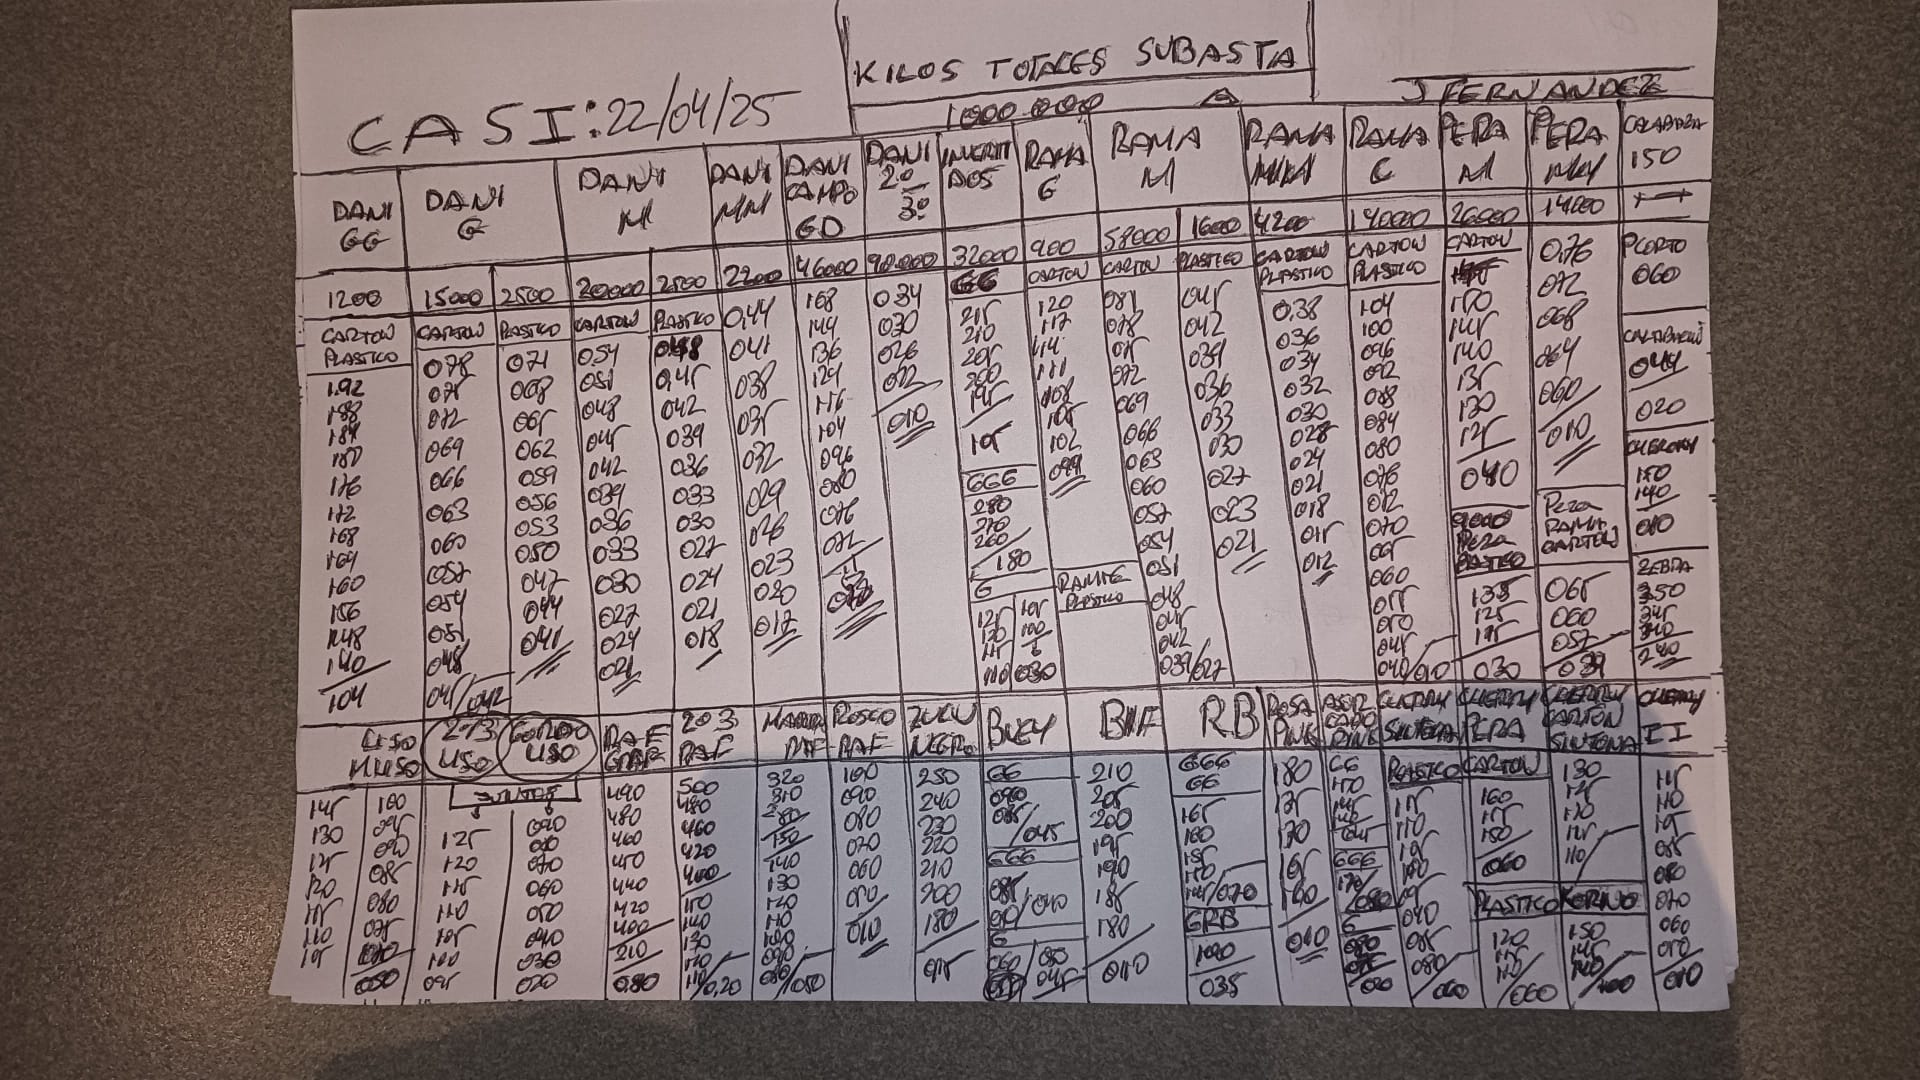 KILOS TOTALES SUBASTA
1000.000
CASI: 22/04/25
J FERNANDEZ
DANI GG
1200
CARTON
PLASTICO
192
188
184
180
176
172
168
164
160
156
148
140
104
DANI G
15000
CARTON
078
075
072
069
066
063
060
057
054
051
048
045/042
2500
PLASTICO
071
068
065
062
059
056
053
050
047
044
041
DANI M
20000
CARTON
054
051
048
045
042
039
036
033
030
027
024
021
2500
PLASTICO
048
045
042
039
036
033
030
027
024
021
018
DANI MM
2200
0,44
041
038
035
032
029
026
023
020
017
DANI CAMPO GD
46000
168
144
136
124
116
104
096
080
076
072
DANI 2º 3º
90.000
034
030
026
022
010
INVERTIDOS
32000
GG
215
210
205
200
195
105
GGG
280
270
260
180
G
RAMA G
900
CARTON
120
117
114
111
108
105
102
099
RAMA M
58000
CARTON
081
078
075
072
069
066
063
060
057
054
051
048
045
042
039/027
1600
PLASTICO
045
042
039
036
033
030
027
023
021
RAMA MMM
4200
CARTON
PLASTICO
0,38
036
034
032
030
028
024
021
018
015
012
RAMA C
140000
CARTON
PLASTICO
104
100
096
092
088
084
080
076
072
070
065
060
055
050
045
040/010
PERA M
26000
CARTON
150
145
140
135
130
125
040
9000
PERA
PLASTICO
135
125
115
030
PERA MM
14000
0,76
072
068
064
060
010
PERA
RAMA
CARTON
065
060
057
039
CALABAZA
150
PCORTO
060
044
020
CHERRY
150
140
010
ZEBRA
350
345
340
240
LISO
MUSO
145
130
125
120
115
110
105
100
095
090
085
080
075
050
2Y3
USO
GORDO
USO
JUNTOS
125
120
115
110
105
100
095
090
070
060
050
040
030
020
RAF
GRAF
490
480
460
450
440
420
400
210
0,80
203
RAF
500
480
460
420
400
150
140
130
120
110/0,20
RAF
320
310
150
140
130
120
110
100
090
080/050
ROSCO
RAF
100
090
080
070
060
050
010
ZULU
NEGRO
250
240
230
220
210
200
180
075
BUEY
GG
090
085/045
GGG
G
BIIF
210
205
200
195
190
185
180
010
RB
GGG
GG
165
160
155
150
145/070
GRB
100
035
ROSA
PINK
180
175
170
165
100
010
CHERRY
SINTONA
PLASTICO
115
110
105
100
095
090
085
080/060
CHERRY
PERA
CARTON
160
155
150
060
PLASTICO
120
115
110/060
CHERRY
CARTON
SINTONA
130
125
120
115
110
KORINO
150
145
140/100
CHERRY
II
115
110
105
085
080
070
060
050
010